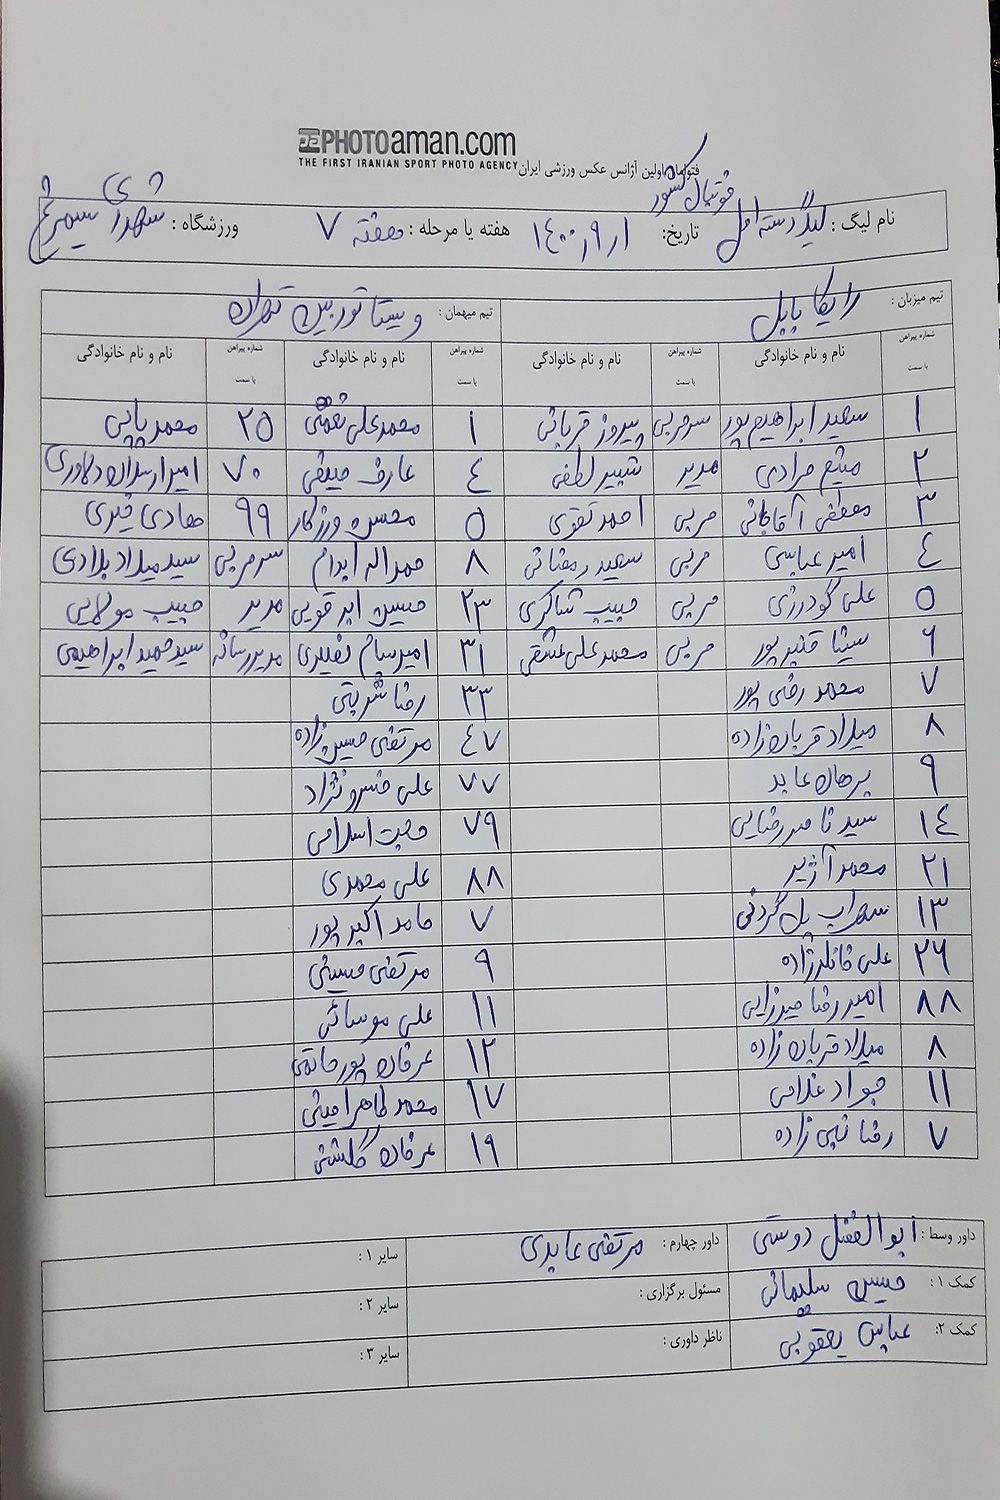 PHOTOaman.com
THE FIRST IRANIAN SPORT PHOTO AGENCY فتوامان اولین آژانس عکس ورزشی ایران
نام لیگ : لیگ دسته اول فوتبال کشور تاریخ: ۱۴۰۰٫۹٫۱ هفته یا مرحله : هفته ۷ ورزشگاه : شهدای سیمرغ
تیم میزبان : رایکا بابل تیم میهمان : ویستا توربین تهران
شماره پیراهن یا سمت نام و نام خانوادگی شماره پیراهن یا سمت نام و نام خانوادگی شماره پیراهن یا سمت نام و نام خانوادگی شماره پیراهن یا سمت نام و نام خانوادگی
۱ سعید ابراهیم پور سرمربی پیروز قربانی ۱ محمدعلی نعمتی ۲۵ محمد پاپی
۲ میثم مرادی مدیر شبیر لطفی ۴ عارف حیفی ۷۰ امیرارسلان دلاوری
۳ مصطفی آقاجانی مربی احمد تقوی ۵ محسن ورزکار ۹۹ هادی خیری
۴ امیر عباسی مربی سعید رمضانی ۸ حمداله ایدام سرمربی سید میلاد بلادی
۵ علی گودرزی مربی حبیب شاکری ۲۳ حسین ابرقویی مدیر حبیب مولایی
۶ سینا قنبرپور مربی محمد علی عشقی ۳۱ امیرسام نصیری مدیررسانه سیدحمید ابراهیمی
۷ محمد رضی پور ۳۳ رضا شربتی
۸ میلاد قربان زاده ۴۷ مرتضی حسین زاده
۹ برهان عابد ۷۷ علی خسرونژاد
۱۴ سید ناصر رضایی ۷۹ حجت اسلامی
۲۱ محمد آژیر ۸۸ علی محمدی
۱۳ سهراب پل گردنی ۷ حامد اکبرپور
۲۶ علی خانلرزاده ۹ مرتضی حسینی
۸۸ امیررضا میرزایی ۱۱ علی موسائی
۸ میلاد قربان زاده ۱۲ عرفان پورحاتمی
۱۱ جواد غلامی ۱۷ محمد طاهر امینی
۷ رضا نبی زاده ۱۹ عرفان گلشنی
داور وسط : ابوالفضل دوستی داور چهارم : مرتضی عابدی سایر ۱ :
کمک ۱ : حسین سلیمانی مسئول برگزاری : سایر ۲ :
کمک ۲: عباس یعقوبی ناظر داوری : سایر ۳ :